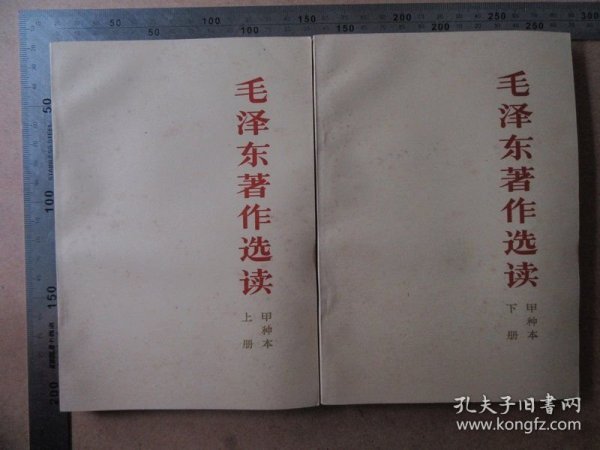 50 100 150 200 250 300
50 100 150 200
毛泽东著作选读
甲种本
上册
毛泽东著作选读
甲种本
下册
孔夫子旧書网
www.kongfz.com